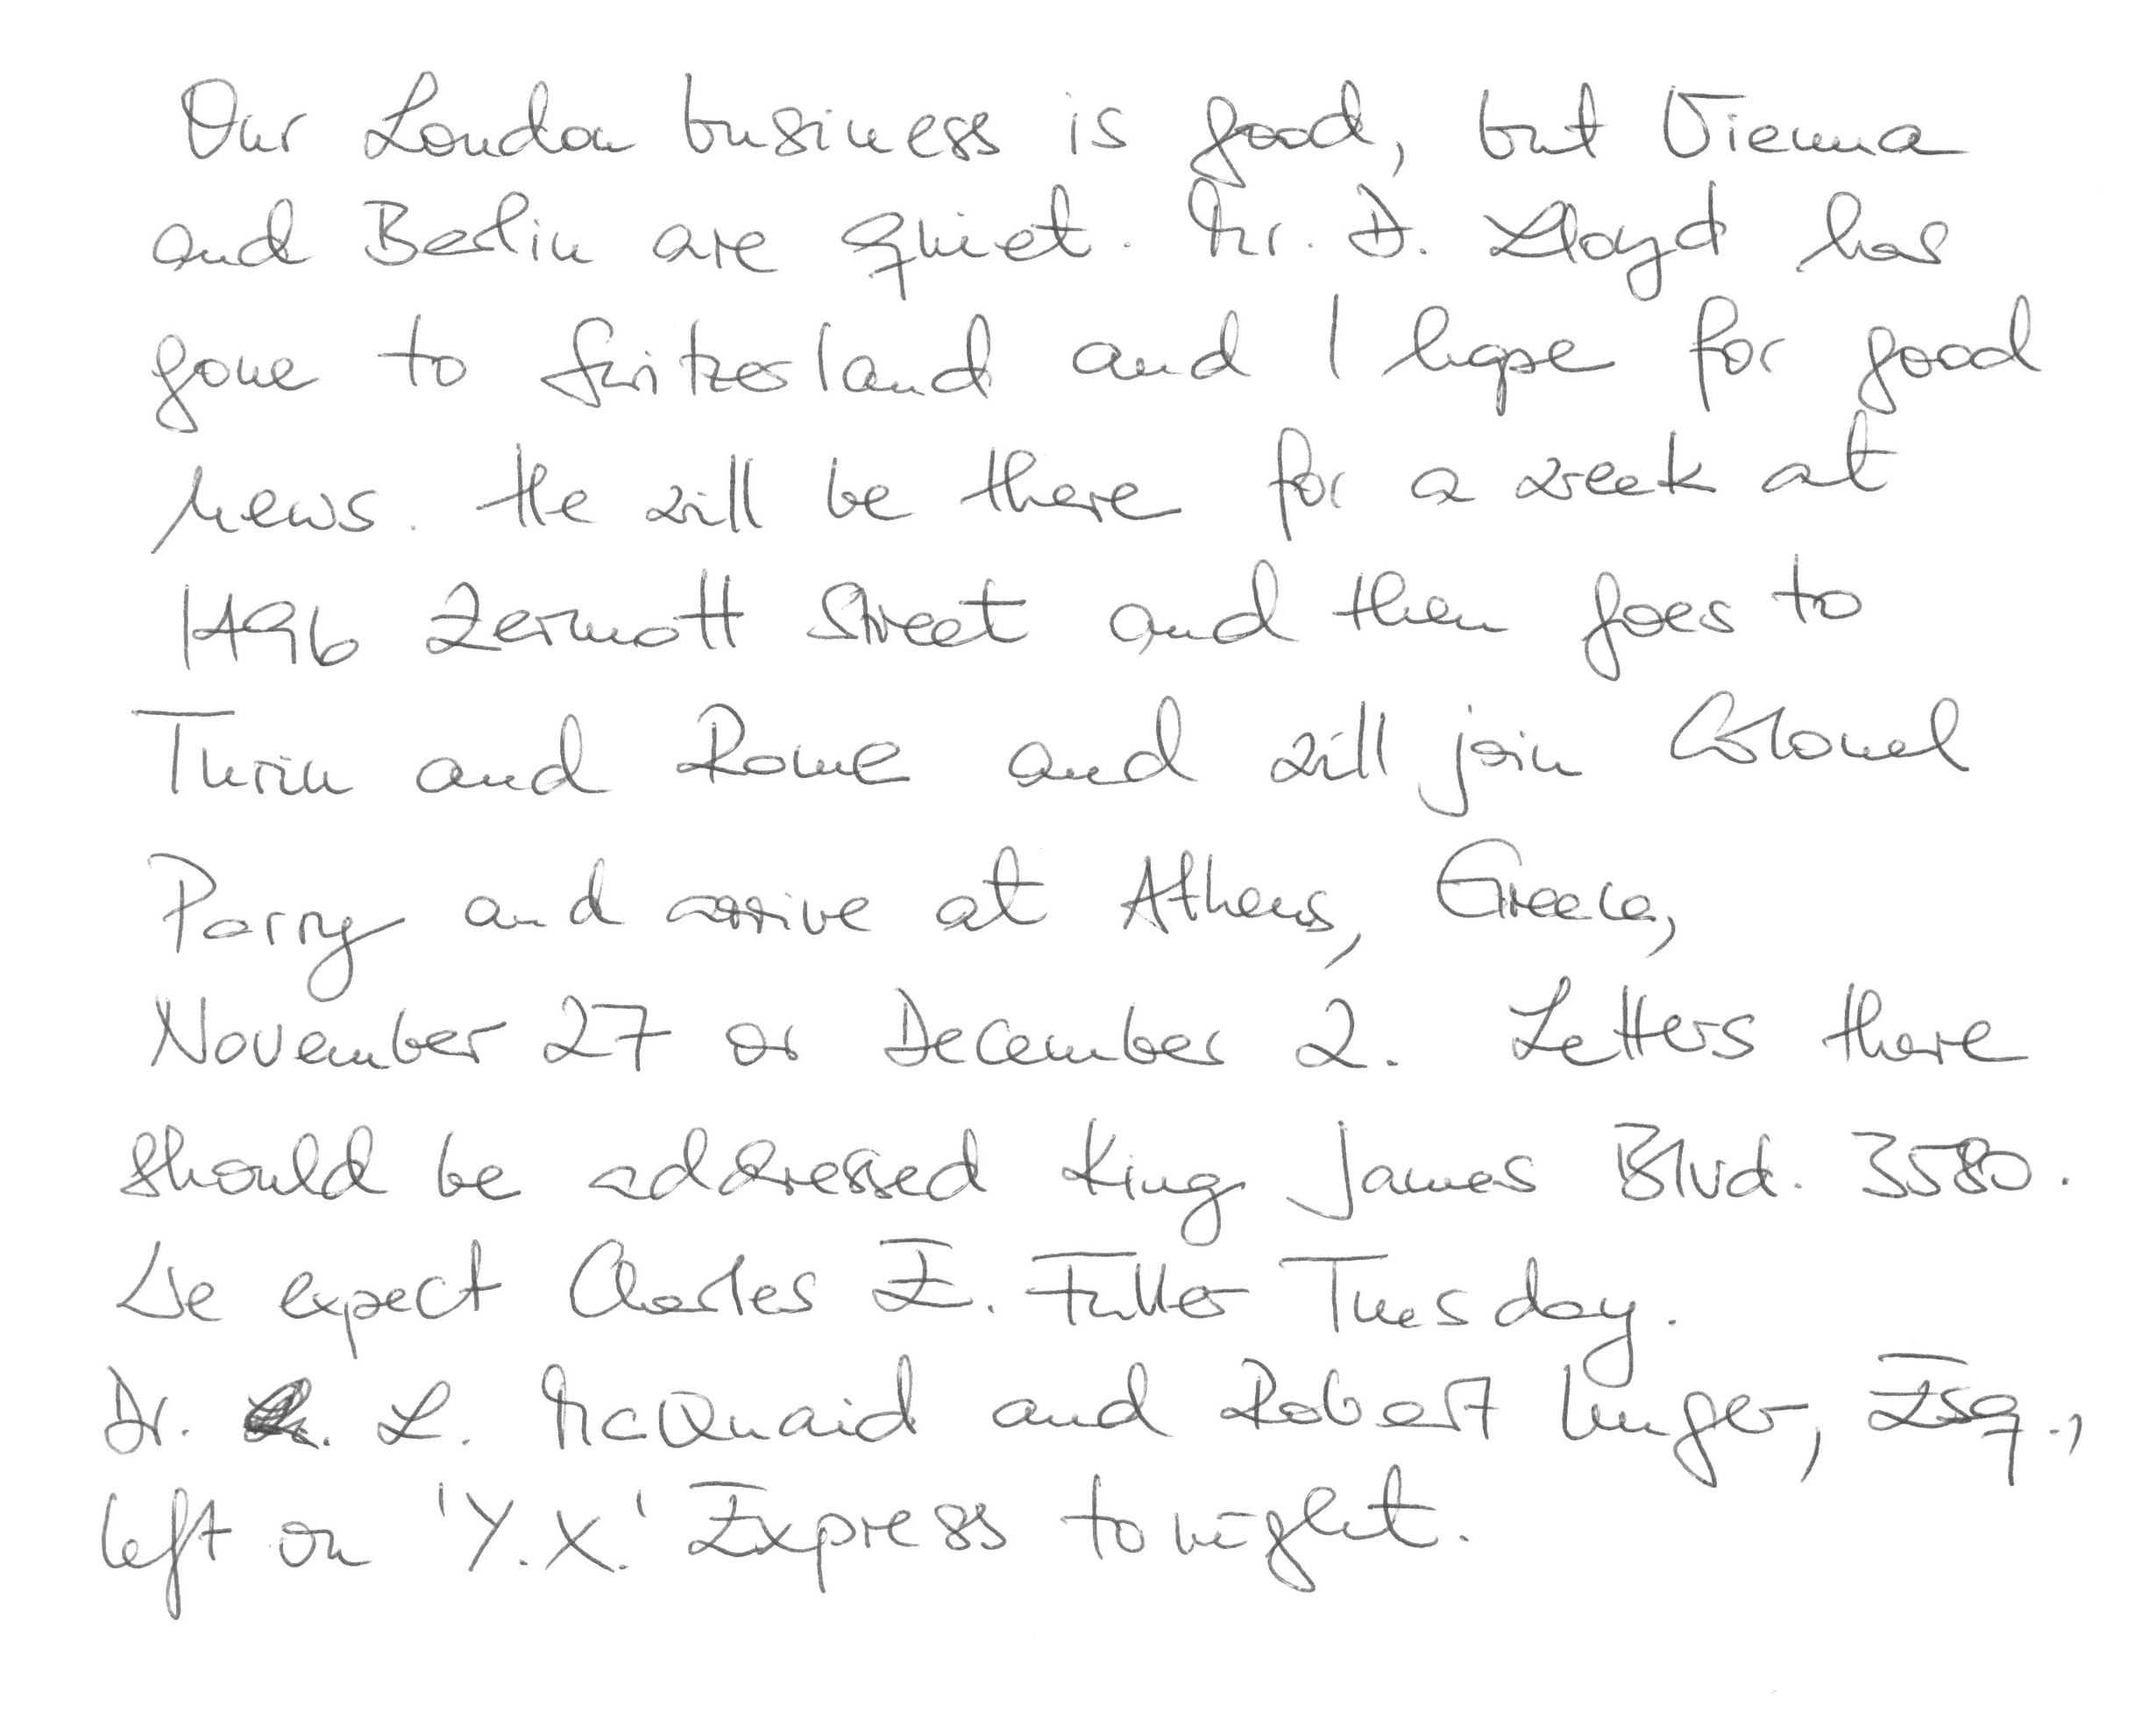 Our London business is good, but Vienna
and Berlin are quiet. Mr. D. Lloyd has
gone to Switzerland and I hope for good
news. He will be there for a week at
1496 Zermott Street and then goes to
Turin and Rome and will join Colonel
Parry and arrive at Athens, Greece,
November 27 or December 2. Letters there
should be addressed King James Blvd. 3580.
We expect Charles E. Fuller Tuesday.
Dr. L. McQuaid and Robert Unger, Esq.,
left on 'Y.X.' Express tonight.